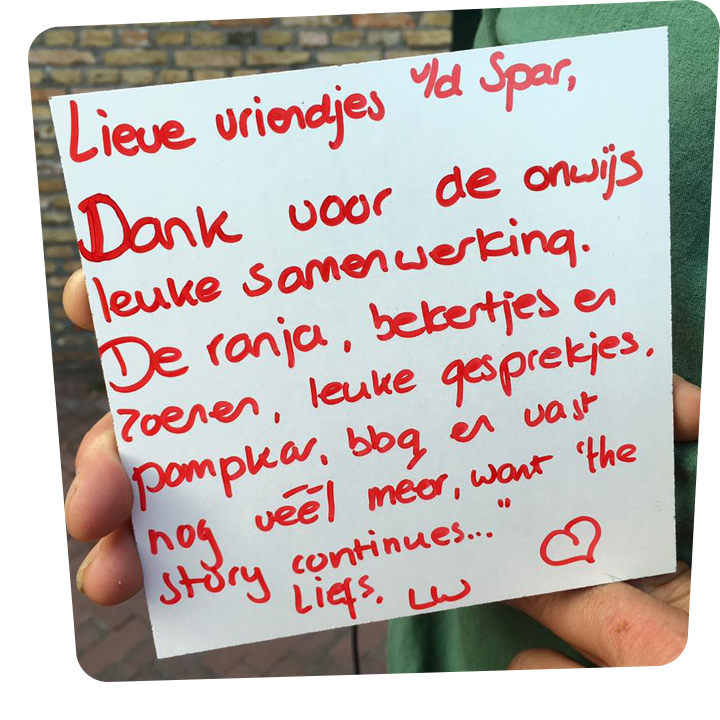 Lieve vriendjes v/d Spar,
Dank voor de onwijs
leuke samenwerking.
De ranja, bekertjes en
zoenen, leuke gesprekjes,
pompkar, bbq en vast
nog véél meer, want "the
story continues..."
Liefs, LW